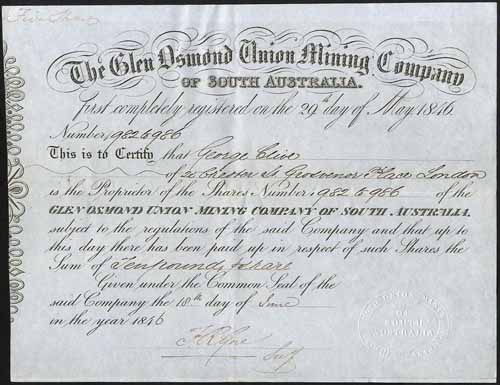 Five Shares
The Glen Osmond Union Mining Company
OF SOUTH AUSTRALIA.
first completely registered on the 29th day of May 1846
Number, 982 to 986
This is to Certify that George Clive
of 2 Chester St. Grosvenor Place London
is the Proprietor of the Shares Number, 982 to 986 of the
GLEN OSMOND UNION MINING COMPANY OF SOUTH AUSTRALIA.
subject to the regulations of the said Company and that up to
this day there has been paid up in respect of such Shares the
Sum of Ten pounds p share
Given under the Common Seal of the
said Company the 18th day of June
in the year 1846
Secy
SOUTH
AUSTRALIA